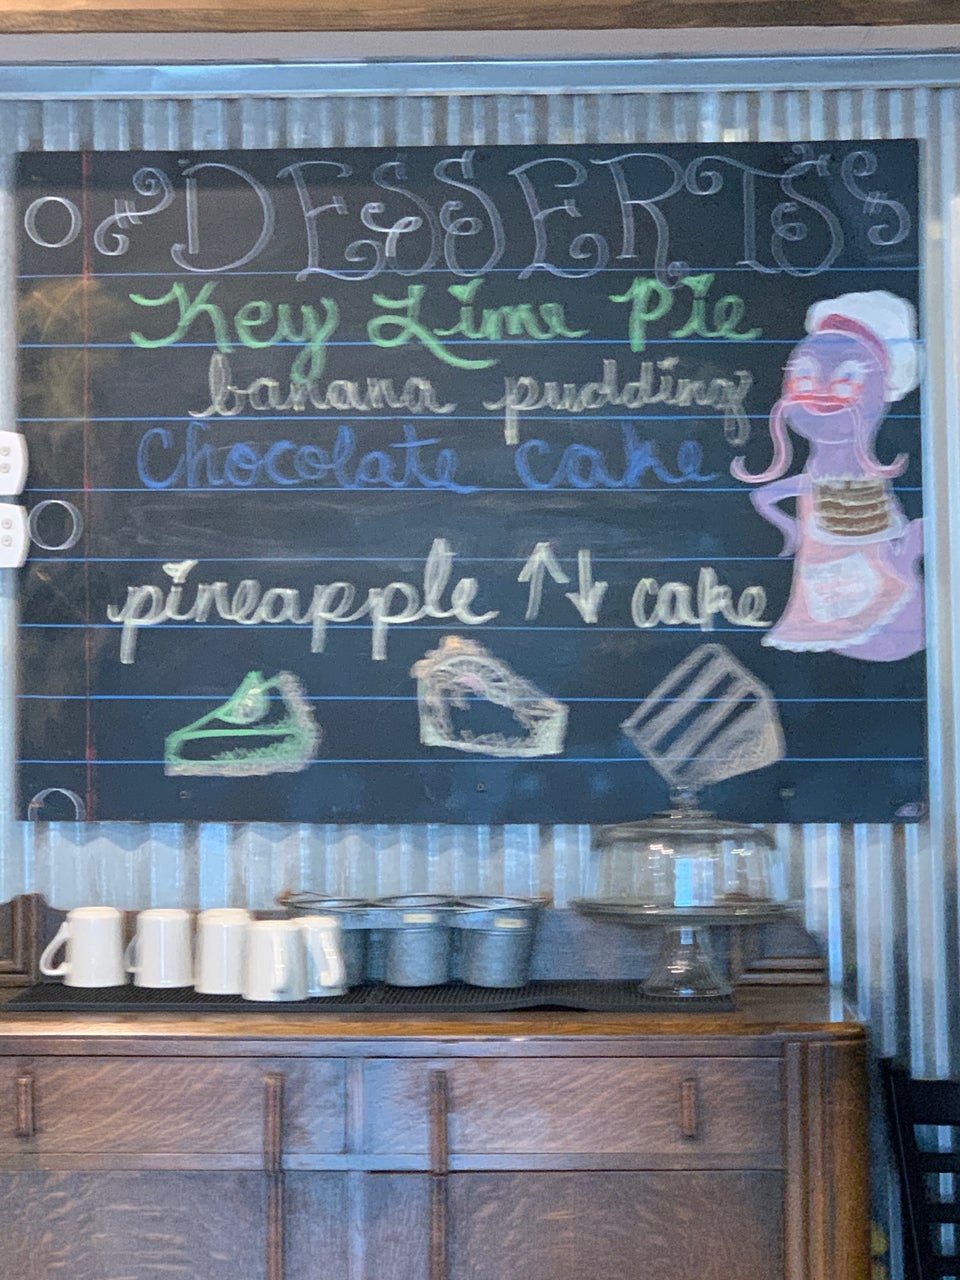 DESSERTS
Key Lime Pie
banana pudding
Chocolate cake
pineapple ↑↓ cake